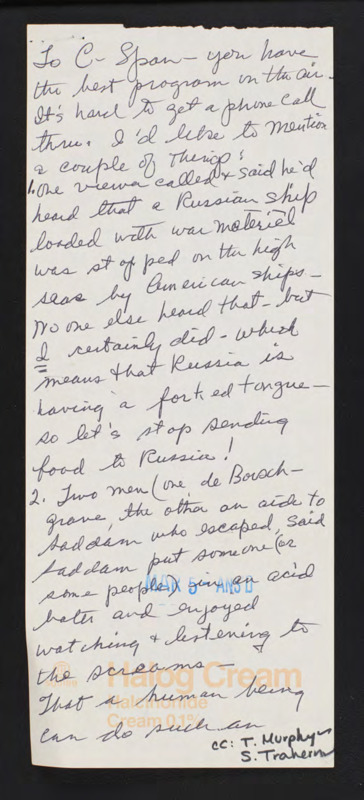 To C-Span - you have
the best program on the air.
It's hard to get a phone call
thru. I'd like to mention
a couple of things:
1. One viewer called & said he'd
heard that a Russian ship
loaded with war materiel
was stopped on the high
seas by American ships -
No one else heard that - but
I certainly did - which
means that Russia is
having a forked tongue -
so let's stop sending
food to Russia!
2. Two men (one de Borsch-
grave, the other an aide to
Saddam who escaped, said
Saddam put someone (or
some people) in an acid
MAR 5 ANSD
bath and enjoyed
watching & listening to
the screams -
Halog Cream
That a human being
Halcinonide
Cream 0.1%
can do such an
cc: T. Murphy
S. Trahern